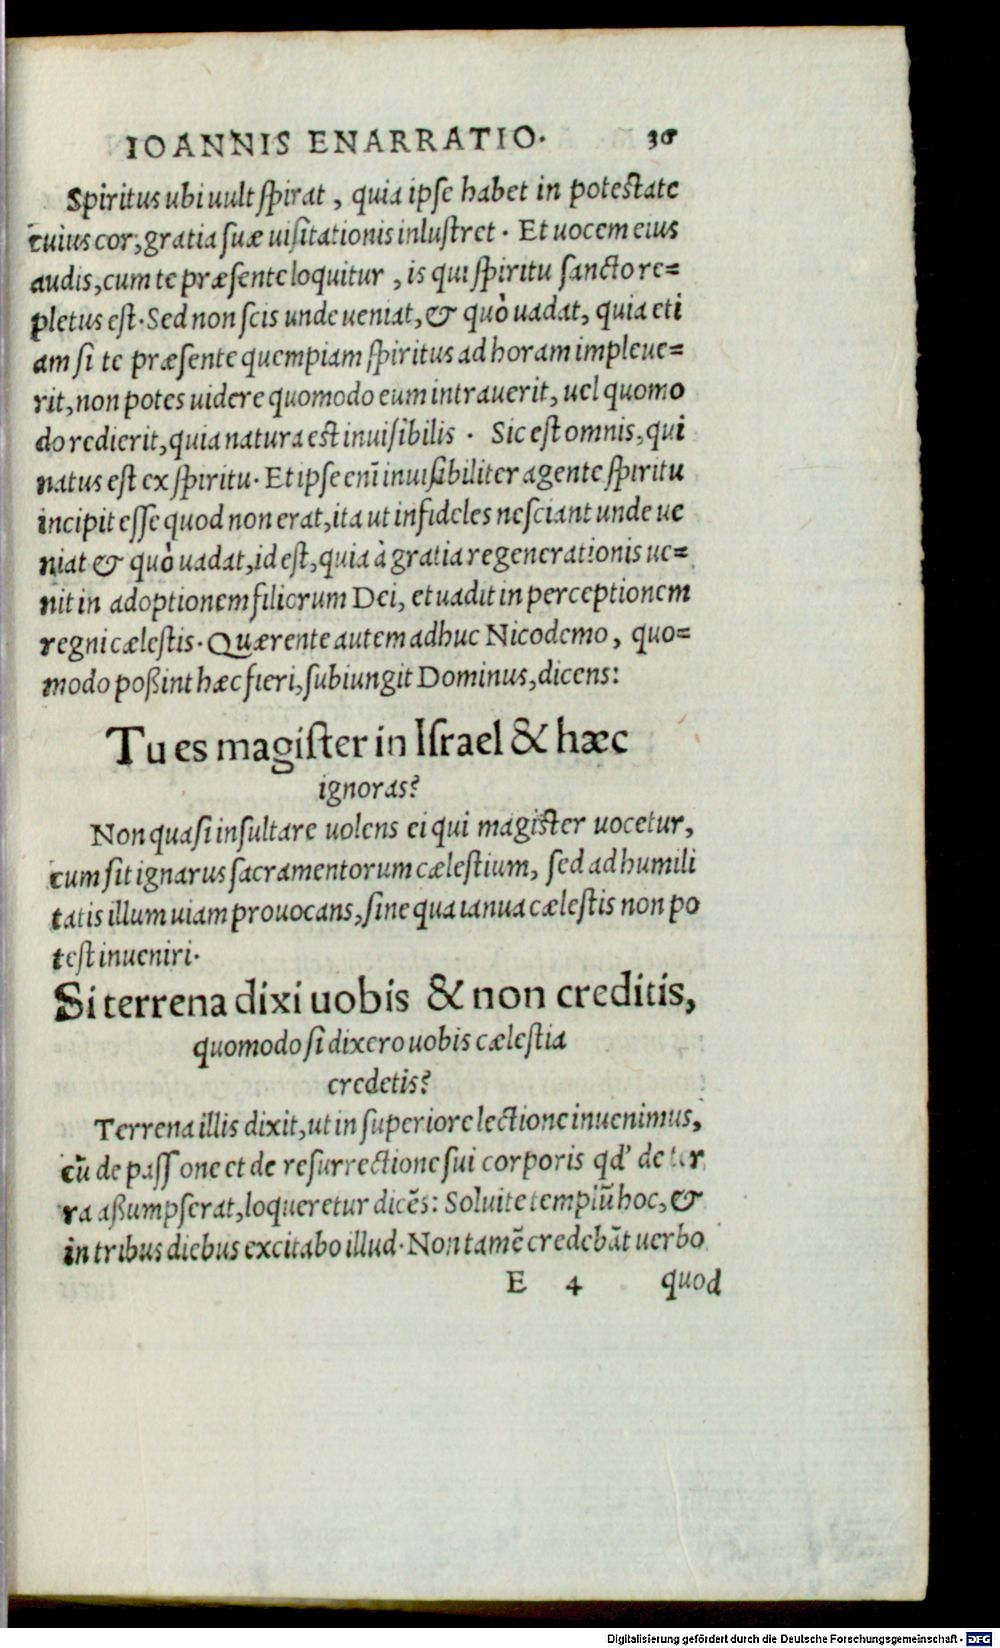 IOANNIS ENARRATIO. 36
Spiritus ubi uult spirat, quia ipse habet in potestate
cuius cor, gratia suæ uisitationis inlustret. Et uocem eius
audis, cum te præsente loquitur, is qui spiritu sancto re=
pletus est. Sed non scis unde ueniat, & quò uadat, quia eti
am si te præsente quempiam spiritus ad horam impleue=
rit, non potes uidere quomodo eum intrauerit, uel quomo
do redierit, quia natura est inuisibilis. Sic est omnis, qui
natus est ex spiritu. Et ipse enī inuisibiliter agente spiritu
incipit esse quod non erat, ita ut infideles nesciant unde ue
niat & quò uadat, id est, quia à gratia regenerationis ue=
nit in adoptionem filiorum Dei, et uadit in perceptionem
regni cælestis. Quærente autem adhuc Nicodemo, quo=
modo poßint hæc fieri, subiungit Dominus, dicens:
Tu es magister in Israel & hæc
ignoras?
Non quasi insultare uolens ei qui magister uocetur,
cum sit ignarus sacramentorum cælestium, sed ad humili
tatis illum uiam prouocans, sine qua ianua cælestis non po
test inueniri.
Si terrena dixi uobis & non creditis,
quomodo si dixero uobis cælestia
credetis?
Terrena illis dixit, ut in superiore lectione inuenimus,
cū de passione et de resurrectione sui corporis qd' de ter
ra aßumpserat, loqueretur dicēs: Soluite templū hoc, &
in tribus diebus excitabo illud. Non tamē credebāt uerbo
E 4 quod
Digitalisierung gefördert durch die Deutsche Forschungsgemeinschaft - DFG